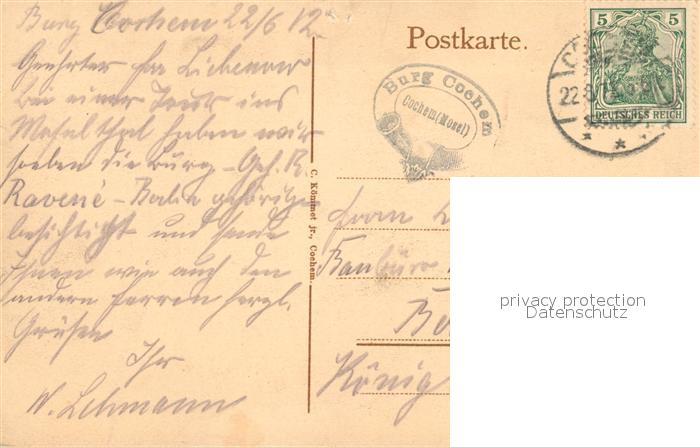 Burg Cochem 22/6 12
Geehrter Herr Liebenow
bei einer Tour ins
Moselthal haben wir
soeben die Burg – Geh. R.
Ravené – Berlin gehörig
besichtigt und sende
Ihnen wie auch den
andern Herren herzl.
Grüßen
Ihr
W. Lehmann
C. Könimet jr., Cochem.
Postkarte.
Burg Cochem
Cochem (Mosel)
5 5
DEUTSCHES REICH
22.
Herrn
Baubüro
Be
König
privacy protection
Datenschutz